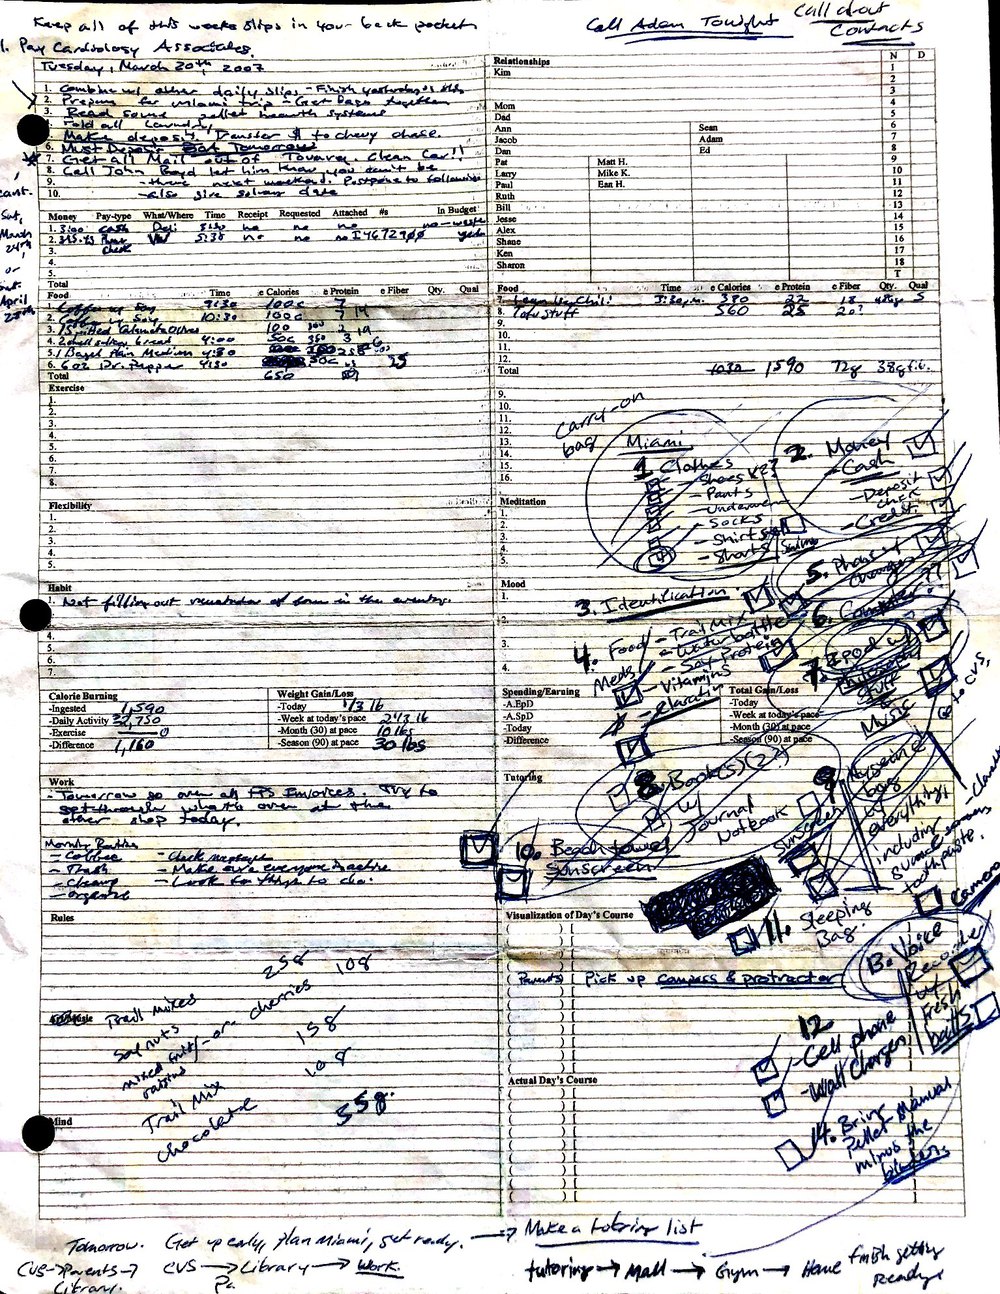 Keep all of this weeks slips in your back pocket
1. Pay Cardiology Associates.
Call Adam Tonight
Call about
Contacts
Tuesday, March 20th, 2007
1. Combine w/ other daily slips - Finish yesterday's
2. Prepare for Miami trip - Get bags together
3. Read some pellet hearth systems
Fold all laundry
Make deposit, Transfer $ to chevy chase.
6. Must Deposit Tomorrow
7. Get all Mail out of Clean Car!!
8. Call John Boyd let him know you can't be
9. there next weekend. Postpone to following
10. - also give solum date
cant.
Sat,
March
24th,
or
April
Money Pay-type What/Where Time Receipt Requested Attached #s In Budget
1. 3.00 cash Deli 3:30 no no no no-waste
2. 5:30 no no no
3. check
4.
5.
Total
Food Time e Calories e Protein e Fiber Qty. Qual
1. Coffee w/ Soy 9:30 100c 7
2. Soy 10:30 100c 7 14
3. 100 2
4. bread 4:00 50c 3
5. 1 Bagel Plain Medium 4:30
6. 6 oz Dr. Pepper 4:50 50c 25
Total 650
Exercise
1.
2.
3.
4.
5.
6.
7.
8.
Flexibility
1.
2.
3.
4.
5.
Habit
1. Not filling out remainder of form in the evening.
4.
5.
6.
7.
Calorie Burning
-Ingested 1,590
-Daily Activity 2,750
-Exercise 0
-Difference 1,160
Weight Gain/Loss
-Today 1/3 lb
-Week at today's pace 2 1/3 lb
-Month (30) at pace 10 lbs
-Season (90) at pace 30 lbs
Work
- Tomorrow go over all FPS Invoices. Try to
get through what's over at the
other shop today.
Morning Routine
- Coffee - Check messages
- Trash - Make sure everyone is active
- Cleanup - Look for things to do.
- organize
Rules
25g 10g
Trail mixes
soy nuts
mixed fruit - or - cherries
raisins 15g
Trail Mix 10g
chocolate 55g
Mind
Relationships N D
Kim
Mom
Dad
Ann Sean
Jacob Adam
Dan Ed
Pat Matt H.
Larry Mike K.
Paul Ean H.
Ruth
Bill
Jesse
Alex
Shane
Ken
Sharon
1
2
3
4
5
6
7
8
9
10
11
12
13
14
15
16
17
18
T
Food Time e Calories e Protein e Fiber Qty. Qual
7. Chili 380 22 18 5
8. Tofu stuff 560 25 20?
9.
10.
11.
12.
Total 1030 1590 72g 38g fib.
9.
10.
11.
12.
13.
14.
15.
16.
Meditation
1.
2.
3.
4.
5.
Mood
1.
2.
3.
4.
Carry-on
bag
Miami
1 Clothes
- Shoes x2?
- Pants
- Underwear
- Socks
- Shirts
- Shorts / Swim
2. Money
- Cash
- Deposit
check
- Credit
3. Identification
4. Food / - Trail Mix
- Water bottle
- Soy Protein
Meds - Vitamins
- Claratin
5. Phone w/
charger
6. Computer??
7. Ipod w/
stuff
Music
Spending/Earning
-A.EpD
-A.SpD
-Today
-Difference
Total Gain/Loss
-Today
-Week at today's pace
-Month (30) at pace
-Season (90) at pace
Tutoring
8. Book(s) (2?)
w/
Journal
Notebook
9. Hygiene
bag
w/
everything
including
sunscreen
toothpaste.
Go to CVS,
Sunscreen
10. Beach towel
Sunscreen
11. Sleeping
Bag
Camera
Visualization of Day's Course
(Parents) Pick up compass & protractor
13. Voice
Recorder
w/
Fresh
batt's
12
- Cell phone
- Wall Charger
Actual Day's Course
14. Bring
Pellet Manual
minus the
binder.
Tomorrow. Get up early, plan Miami, get ready. → Make a tutoring list
CVS → Parents → CVS → Library → Work.
Library.
tutoring → Mall → Gym → Home finish getting
Ready